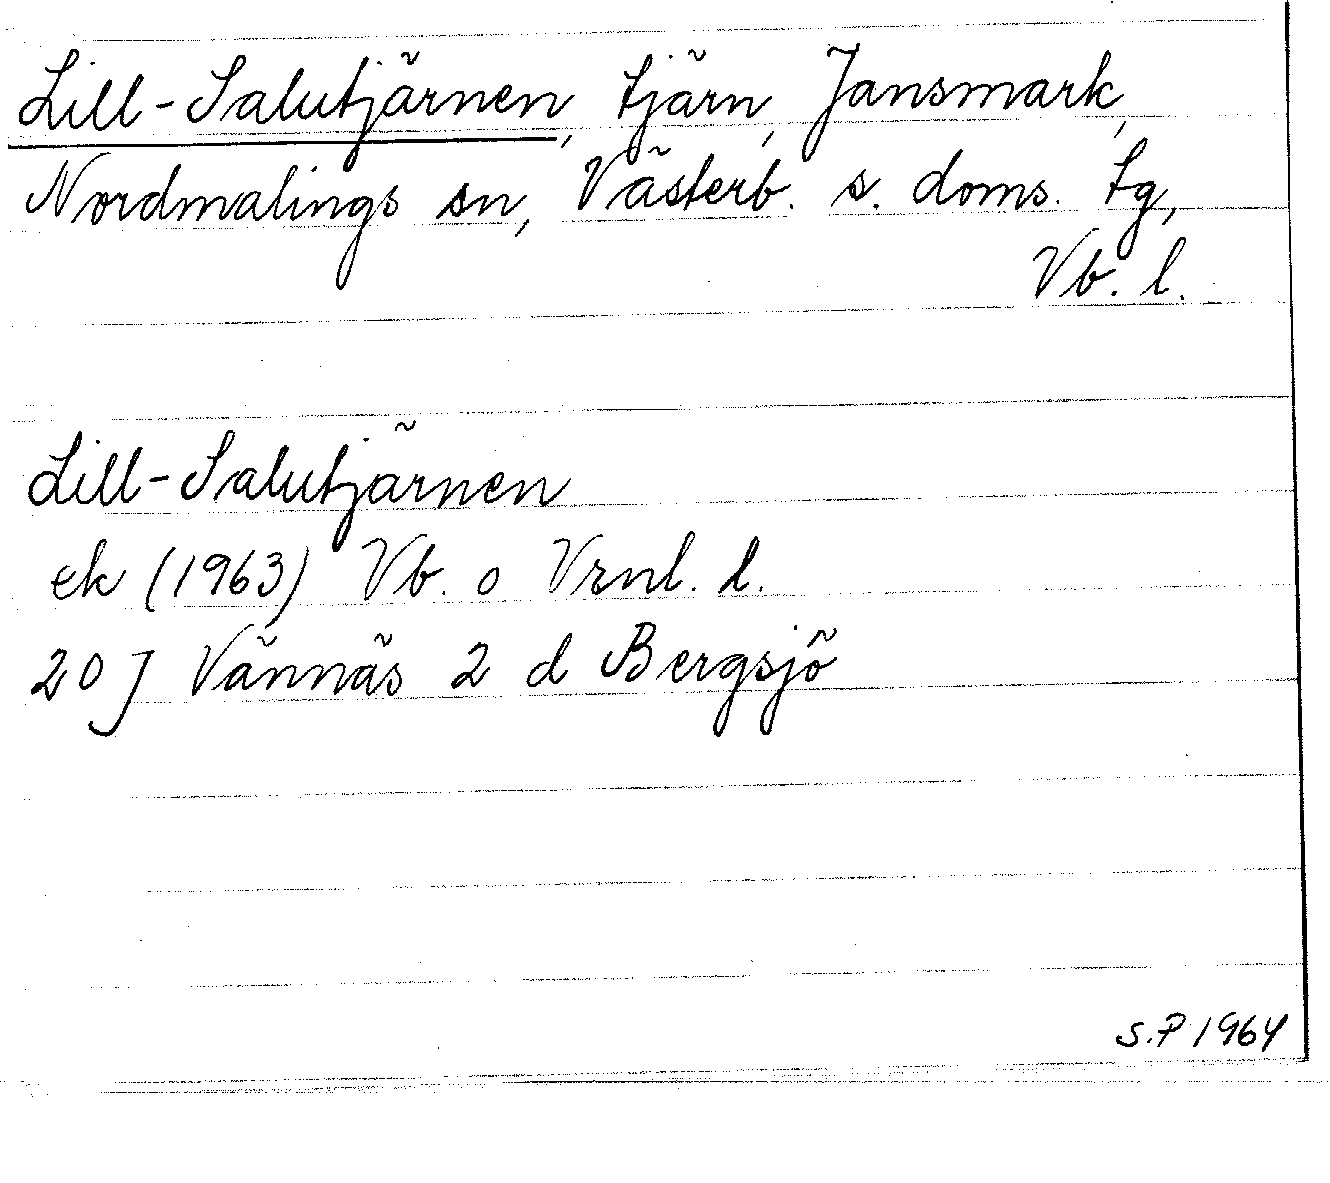 Lill-Salutjärnen, tjärn, Jansmark,
Nordmalings sn, Västerb. s. doms. tg,
Vb. l.
Lill-Salutjärnen
ek (1963) Vb. o Vrnl. l.
20 J Vännäs 2 d Bergsjö
S.P 1964